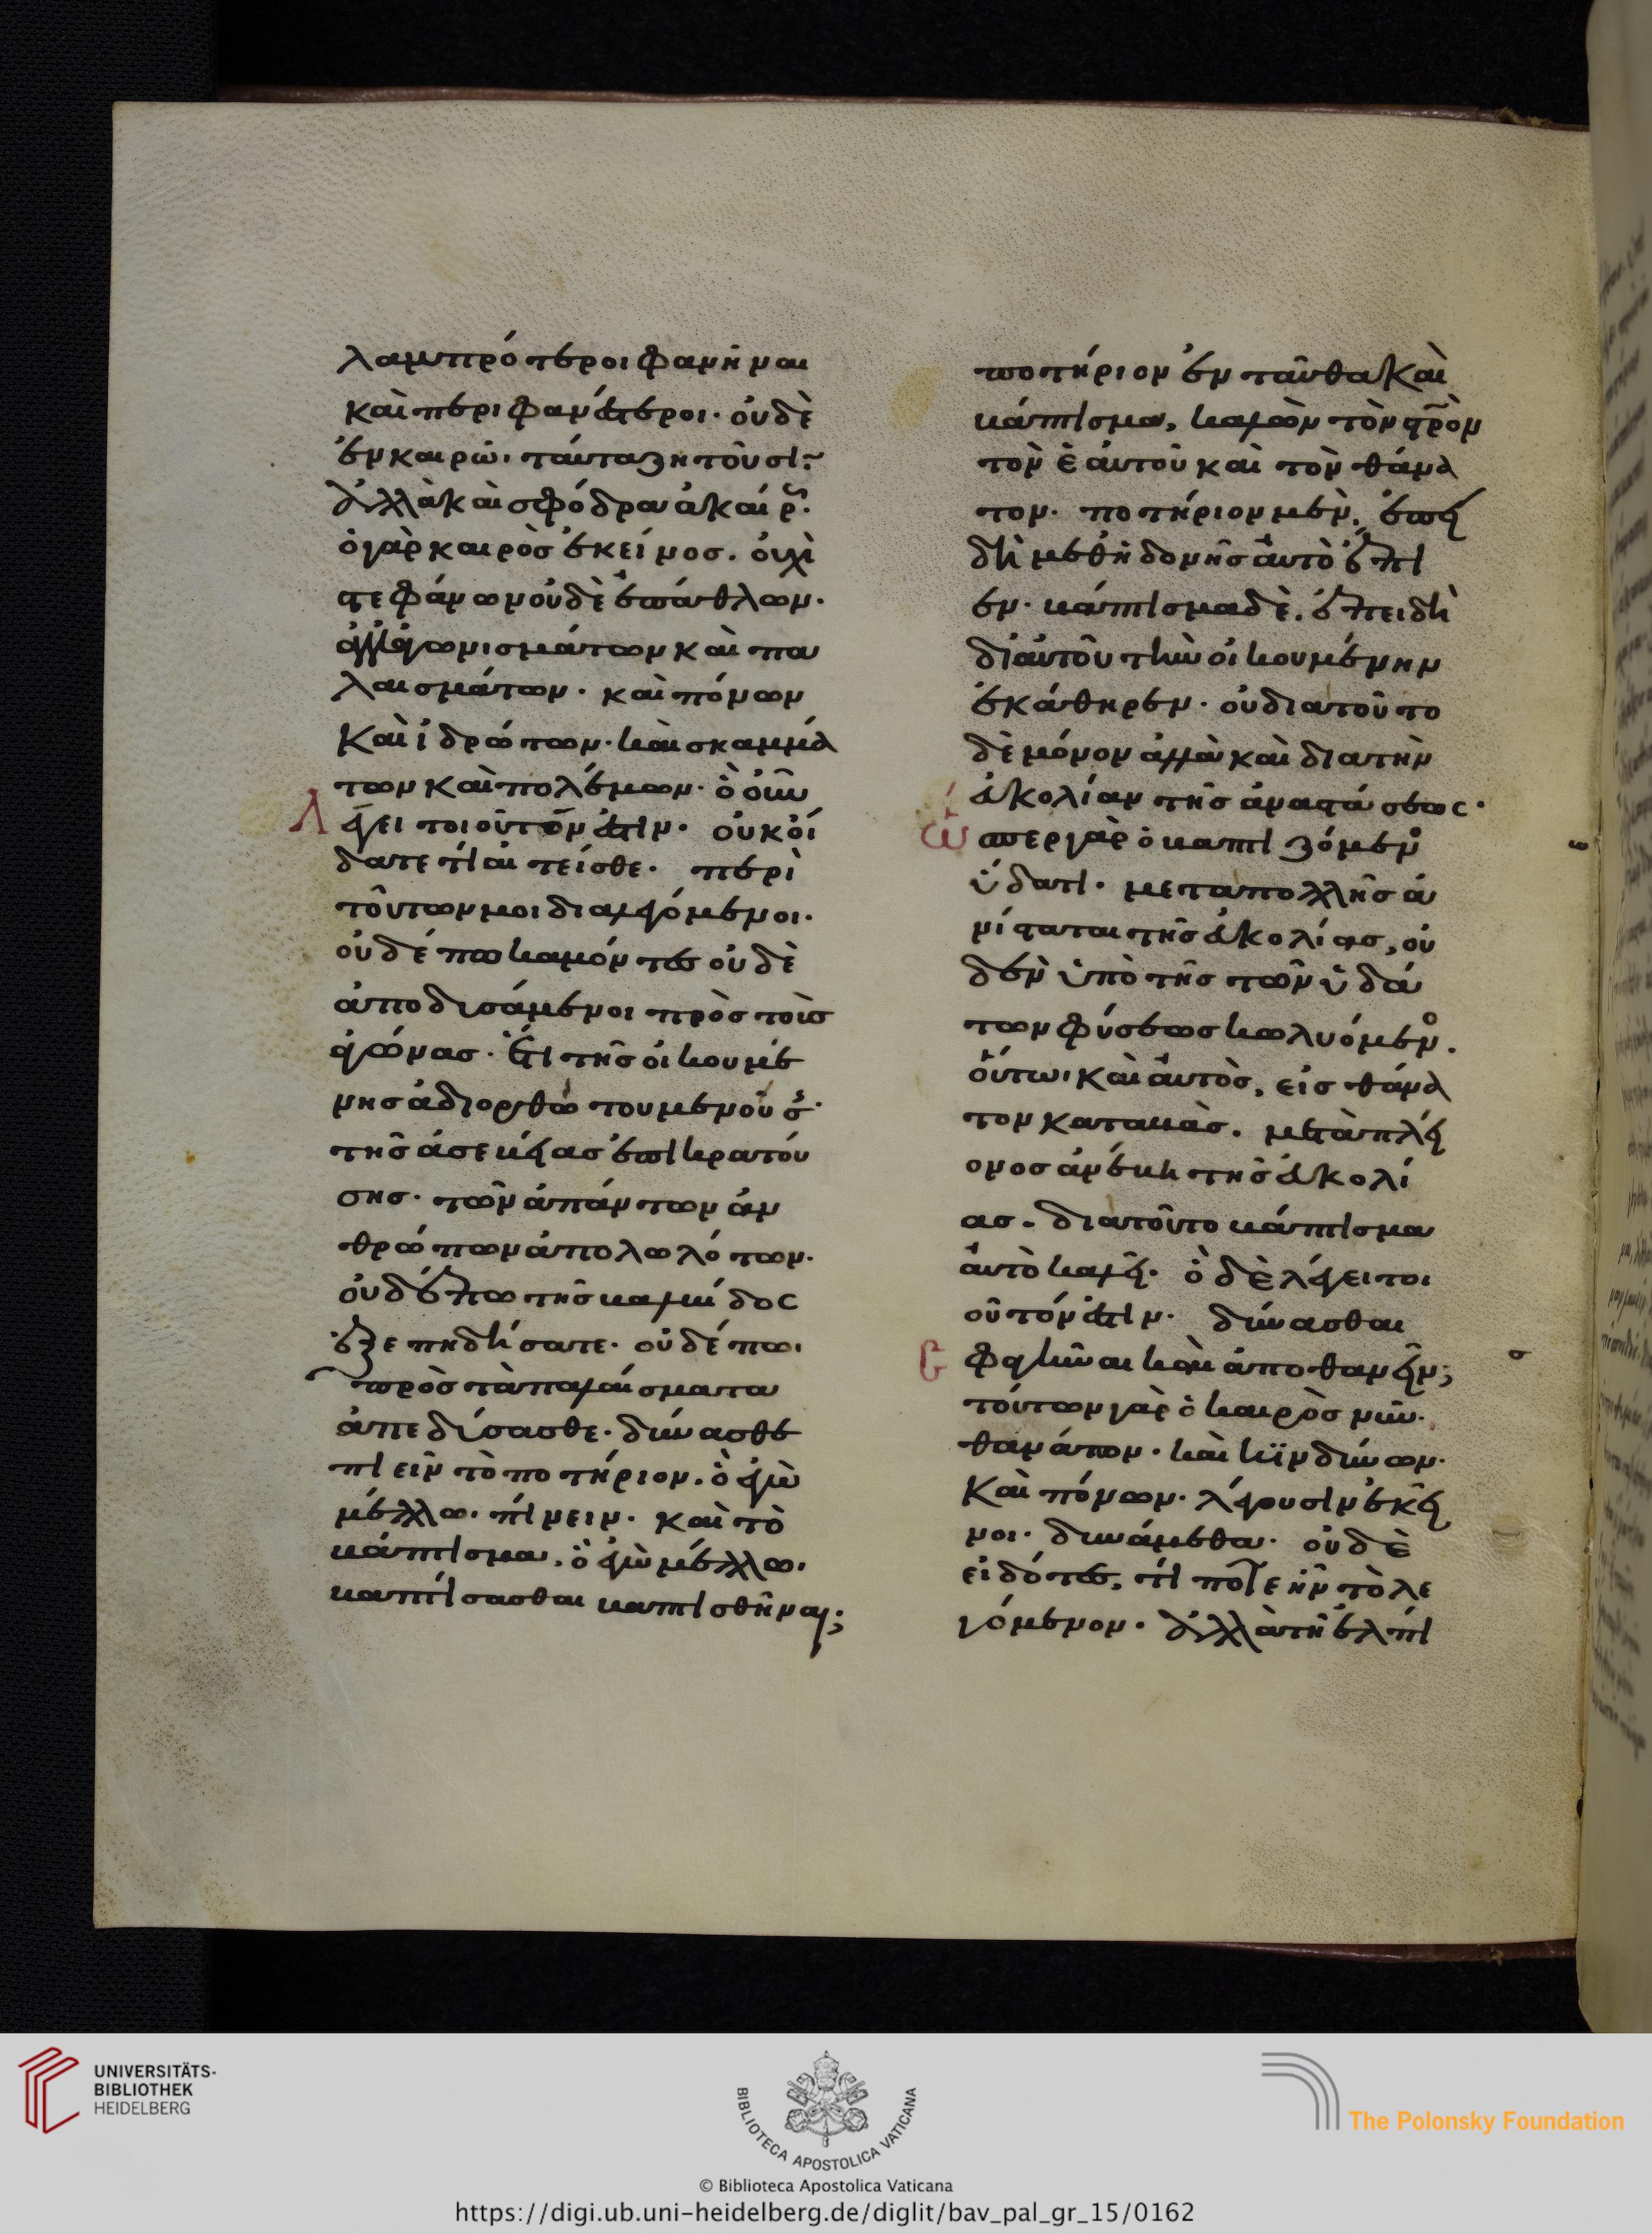 λαμπρότεροι φανῆναι
καὶ περιφανέστεροι· οὐδὲ
ἐν καιρῶ, ταῦτα ζητοῦσιν·
ἀλλὰ καὶ σφόδρα ἀκαίρ·
ὁ γὰρ καιρὸς ἐκεῖνος. οὐχὶ
στεφάνων οὐδὲ ἐπάθλων·
ἀλλ' ἀγωνισμάτων καὶ πα
λαισμάτων· καὶ πόνων
καὶ ἱδρώτων· καὶ σκαμμά
των καὶ πολέμων· ὃ οὖν
λέγει τοιοῦτόν ἐστιν· οὐκ οἴ
δατε τί αἰτεῖσθε· περὶ
τούτων μοι διαλεγόμενοι·
οὐδέπω καμόντες οὐδὲ
ἀποδυσάμενοι πρὸς τοὺς
ἀγῶνας· ἔτι τῆς οἰκουμέ
νης ἀδιορθώτου μενούσ·
τῆς ἀσεβείας ἐπικρατού
σης· τῶν ἁπάντων ἀν
θρώπων ἀπολωλότων·
οὐδέπω τῆς βαλβίδος
ἐξεπηδήσατε· οὐδέπω,
πρὸς τὰ παλαίσματα
ἀπεδύσασθε· δύνασθε
πιεῖν τὸ ποτήριον. ὃ ἐγὼ
μέλλω. πίνειν· καὶ τὸ
βάπτισμα. ὃ ἐγὼ μέλλω.
βαπτίσασθαι βαπτισθῆναι;
ποτήριον ἐνταῦθα καὶ
βάπτισμα, καλῶν τὸν στρὸν
τὸν ἑαυτοῦ καὶ τὸν θάνα
τον· ποτήριον μὲν. ἐπει
δὴ μεθ' ἡδονῆς αὐτὸ ἔπι
εν· βάπτισμα δὲ. ἐπειδὴ
δι' αὐτοῦ τὴν οἰκουμένην
ἐκάθηρεν· οὐ διατοῦτο
δὲ μόνον ἀλλὰ καὶ διατὴν
εὐκολίαν τῆς ἀναστάσεως·
ὥσπερ γὰρ ὁ βαπτιζόμενο
ὕδατι· μετα πολλῆς ἀ
νίσταται τῆς εὐκολίας, οὐ
δὲν ὑπὸ τῆς τῶν ὑδά
των φύσεως κωλυόμενο.
οὕτω, καὶ αὐτὸς, εἰς θάνα
τον καταβὰς. μετὰ πλεί
ονος ἀνέβη τῆς εὐκολί
ας. διατοῦτο βάπτισμα
αὐτὸ καλεῖ· ὃ δὲ λέγει τοι
οῦτόν ἐστιν· δύνασθαι
σφαγῆναι καὶ ἀποθανεῖν;
τούτων γὰρ ὁ καιρὸς νῦν·
θανάτων· καὶ κϊνδύνων·
καὶ πόνων· λέγουσιν ἐκεῖ
νοι· δυνάμεθα· οὐδὲ
εἰδότες, τί ποτε ἦν τὸ λε
γόμενον· ἀλλὰ τῆ ἐλπί
UNIVERSITÄTS-
BIBLIOTHEK
HEIDELBERG
BIBLIOTECA APOSTOLICA VATICANA
The Polonsky Foundation
© Biblioteca Apostolica Vaticana
https://digi.ub.uni-heidelberg.de/diglit/bav_pal_gr_15/0162